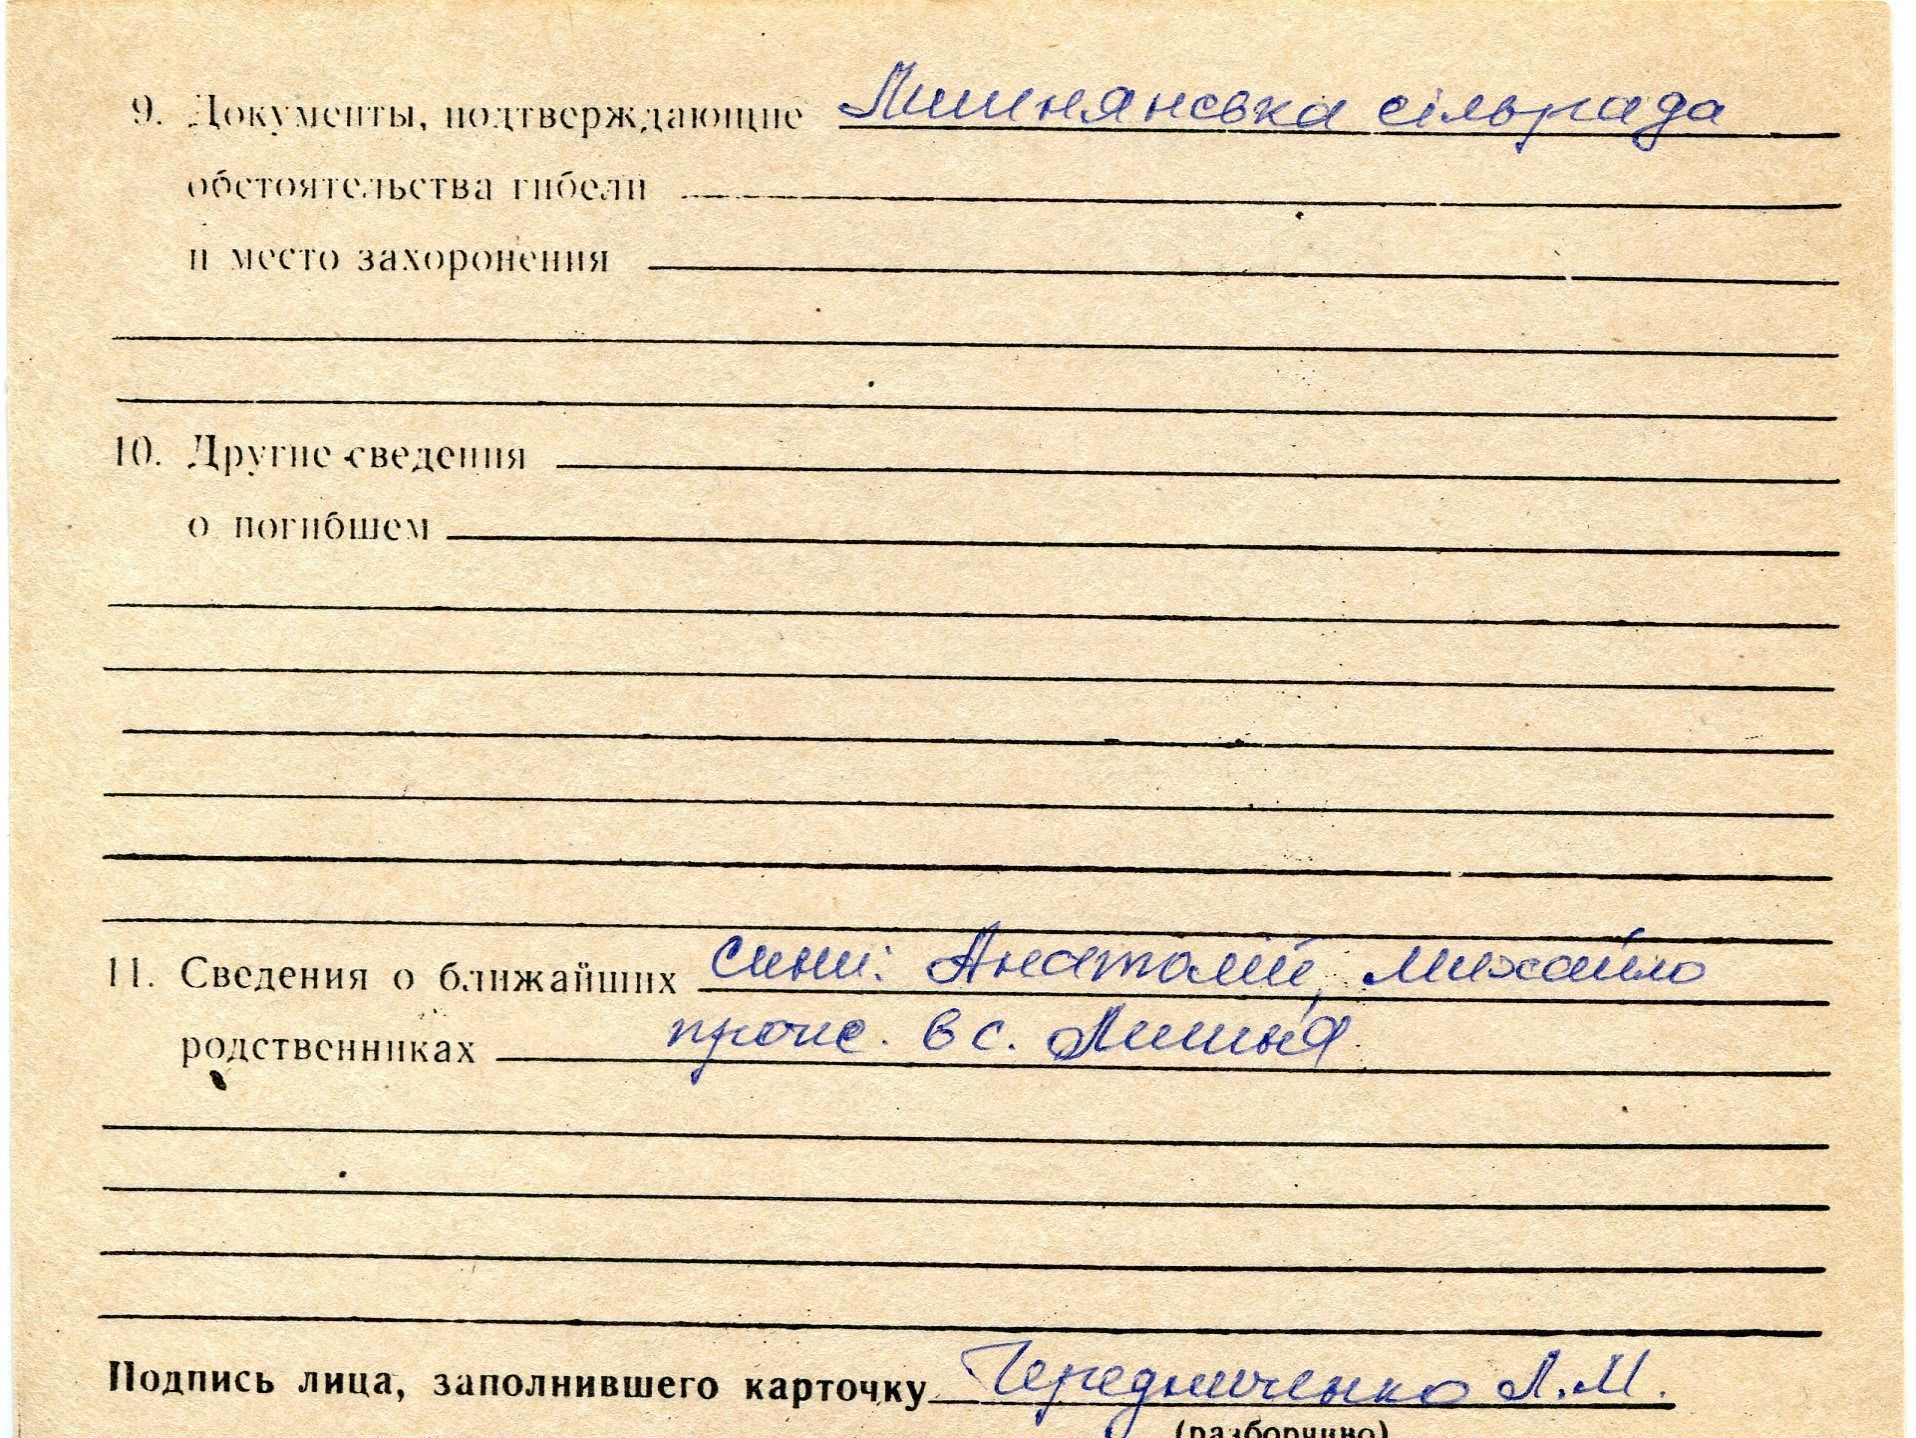 9. Документы, подтверждающие Лишнянська сільрада
обстоятельства гибели
и место захоронения
10. Другие сведения
о погибшем
11. Сведения о ближайших сини: Анатолій, Михайло
родственниках прожс. в с. Лишня
Подпись лица, заполнившего карточку Чередниченко Л.М.
(разборчиво)